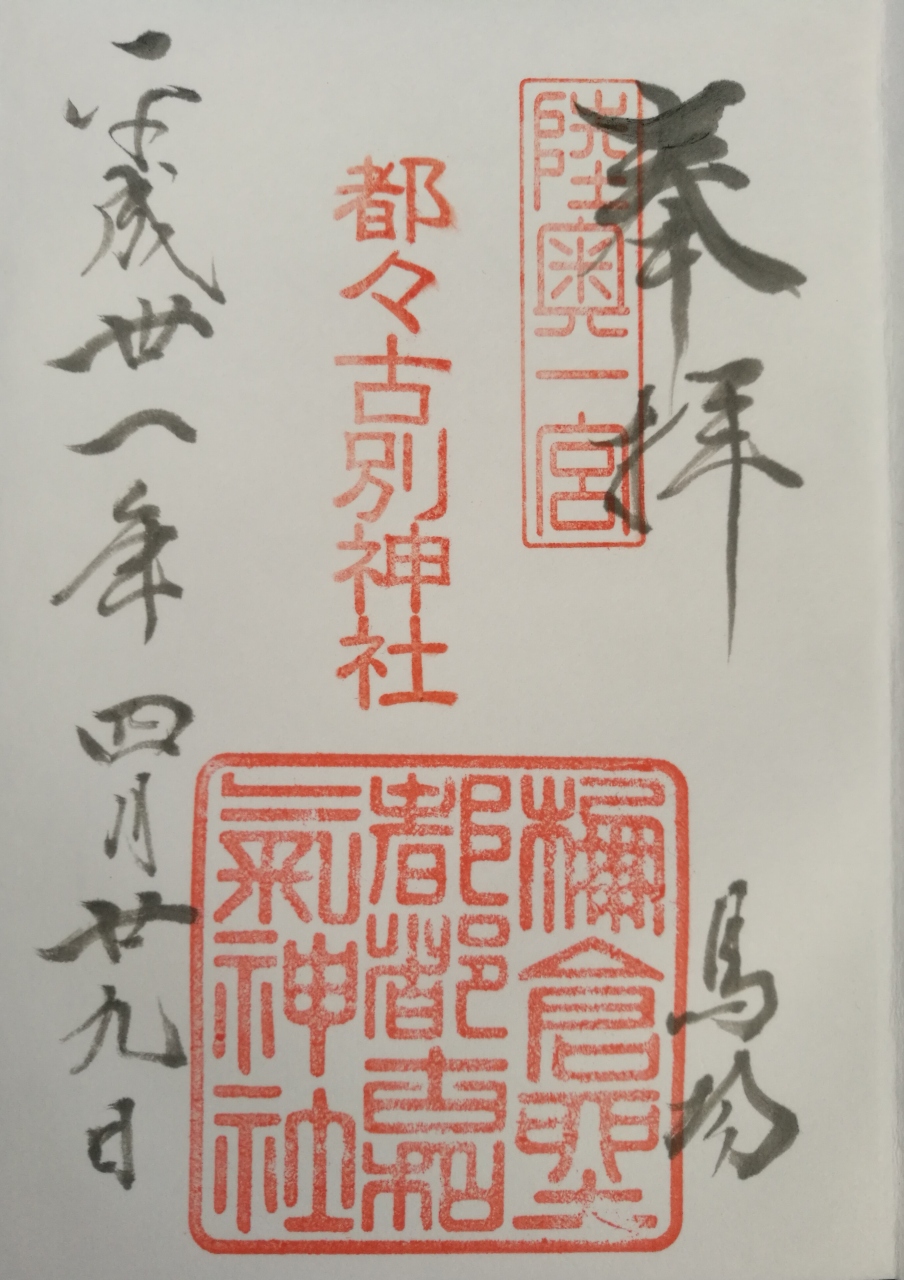 奉拝
陸奥一宮
馬場
都々古別神社
檷倉坐
都都古和
氣神社
平成丗一年 四月廿九日